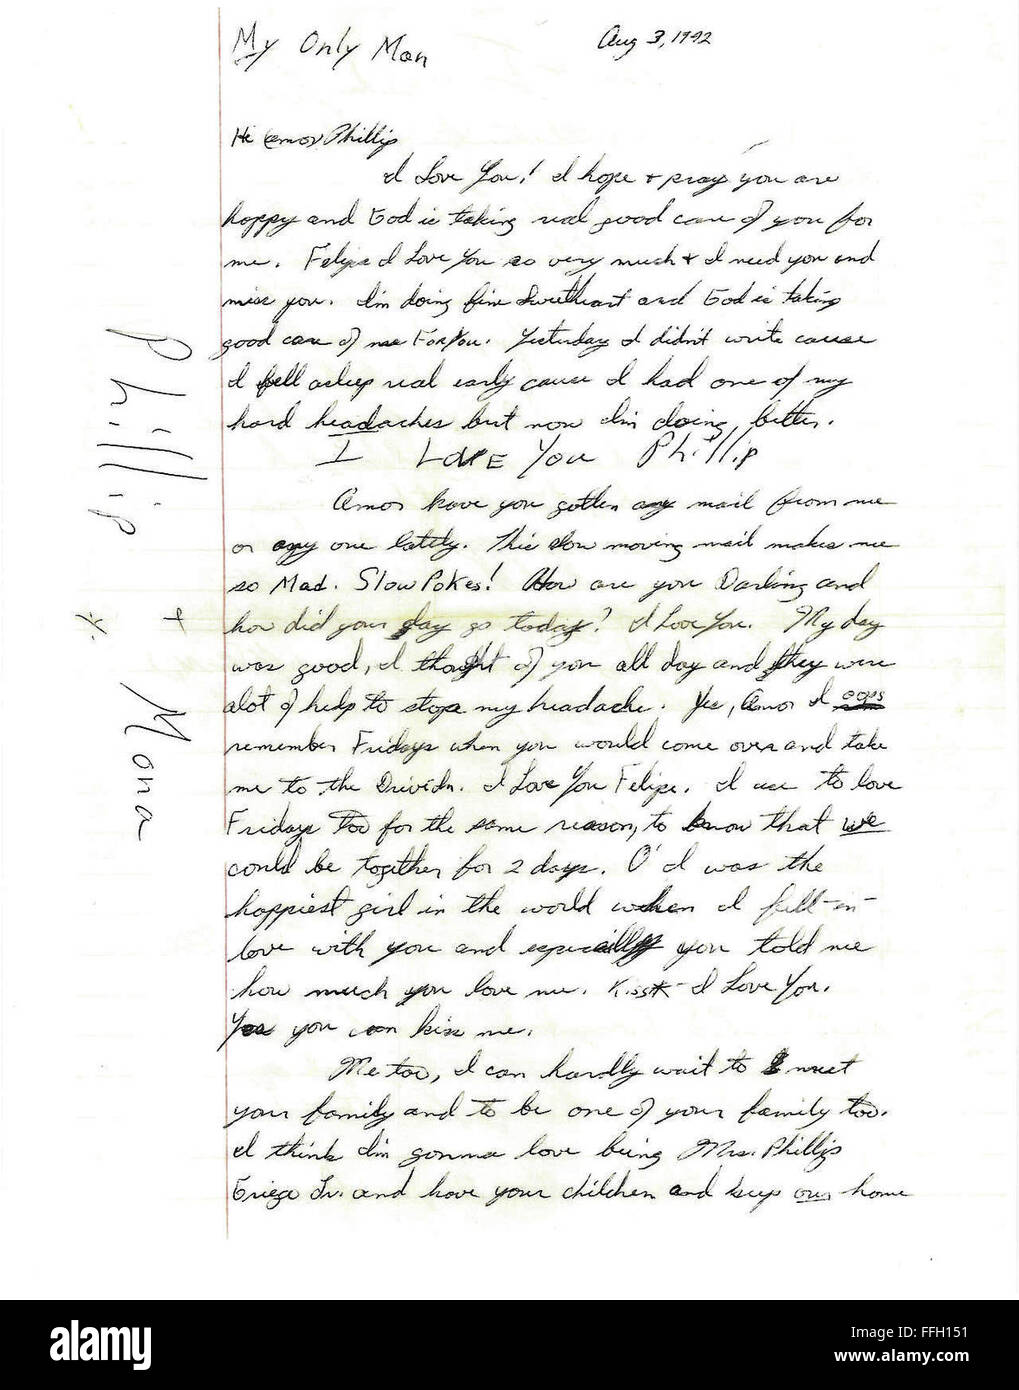 My Only Man
Aug 3, 1992
Hi Amor Phillip
I Love You! I hope + pray you are
happy and God is taking real good care of you for
me. Felipe I Love You so very much + I need you and
miss you. I'm doing fine Sweetheart and God is taking
good care of me For You. Yesterday I didn't write cause
I fell asleep real early cause I had one of my
hard headaches but now I'm doing better.
I LOVE You Phillip
Amor have you gotten any mail from me
or any one lately. This slow moving mail makes me
so Mad. Slow Pokes! How are you Darling and
how did your day go today? I Love You. My day
was good, I thought of you all day and they were
alot of help to stop my headache. Yes, Amor I oops
remember Fridays when you would come over and take
me to the Drivein. I Love You Felipe. I use to love
Fridays Too for the same reason, to know that we
could be together for 2 days. O' I was the
happiest girl in the world when I fell-in-
love with you and especially you told me
how much you love me. Kiss* - I Love You.
Yes you can kiss me.
Me too, I can hardly wait to meet
your family and to be one of your family too.
I think I'm gonna love being Mrs. Phillip
Jr. and have your children and keep our home
Phillip
+ *
Mona
alamy
a
Image ID: FFH151
www.alamy.com